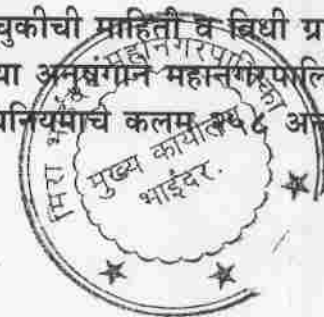 चुकीची माहिती व विधी ग्र
या अनुषंगाने महानगरपालि
धनियमाचे कलम २५८ अन
मिरा भाईंदर महानगरपालिका
मुख्य कार्यालय
भाईंदर.